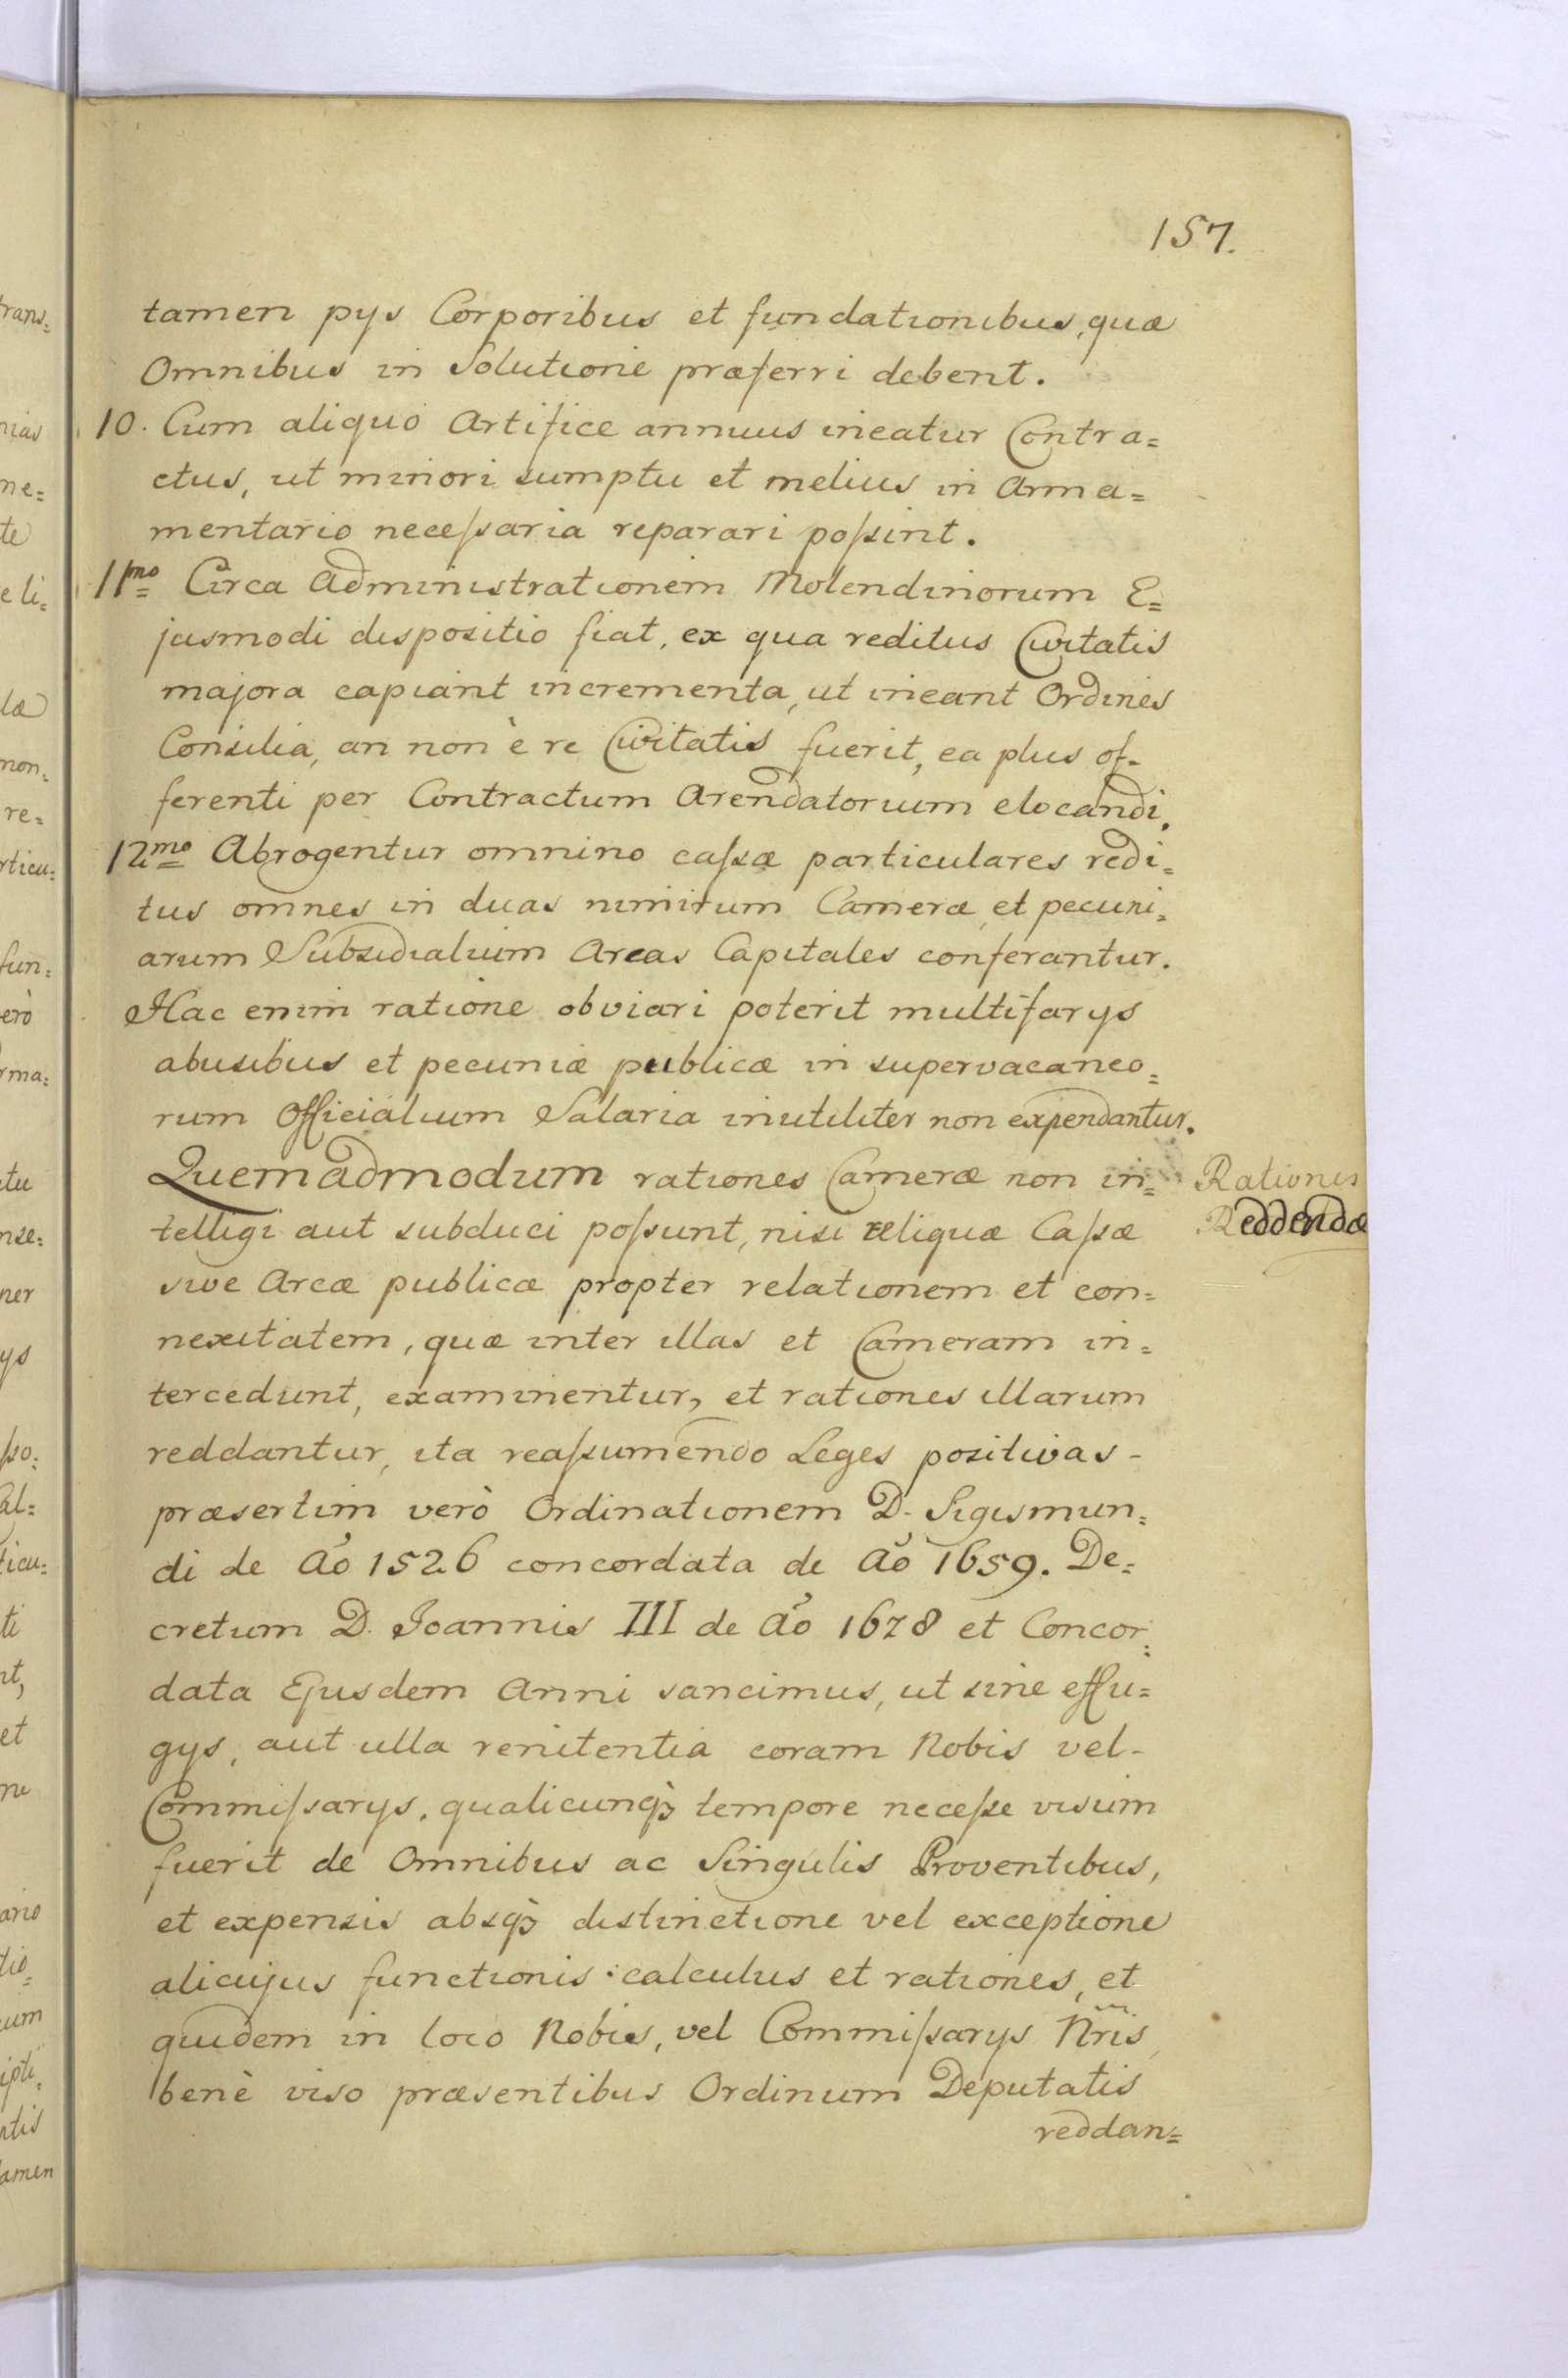 157.
tamen pys Corporibus et fundationibus, quæ
Omnibus in Solutione præferri debent.
10. Cum aliquo Artifice annuus ineatur Contra=
ctus, ut minori sumptu et melius in Arma=
mentario neceſsaria reparari poſsint.
11mo Circa Administrationem Molendinorum E=
jusmodi dispositio fiat, ex qua reditus Civitatis
majora capiant incrementa, ut ineant Ordines
Consilia, an non è re Civitatis fuerit, ea plus of-
ferenti per Contractum Arendatorium elocandi.
12mo Abrogentur omnino caſsæ particulares redi=
tus omnes in duas nimirum Cameræ, et pecuni=
arum Subsidialium Arcas Capitales conferantur.
Hac enim ratione obviari poterit multifarys
abusibus et pecuniæ publicæ in supervacaneo=
rum Officialium Salaria inutiliter non expendantur.
Quemadmodum rationes Cameræ non in=
Rationes
Reddendæ
telligi aut subduci poſsunt, nisi reliquæ Caſsæ
sive Arcæ publicæ propter relationem et con=
nexitatem, quæ inter illas et Cameram in=
tercedunt, examinentur, et rationes illarum
reddantur, ita reaſsumendo Leges positivas-
præsertim verò Ordinationem D. Sigismun=
di de Aõ 1526 concordata de Aõ 1659. De=
cretum D. Joannis III de Aõ 1678 et Concor=
data Ejusdem Anni sancimus, ut sine effu=
gys, aut ulla renitentia coram Nobis vel-
Commiſsarys, qualicunq̃ tempore neceſse visum
fuerit de Omnibus ac Singulis Proventibus,
et expensis absq̃ distinctione vel exceptione
alicujus functionis calculus et rationes, et
quidem in loco Nobis, vel Commiſsarys Nr̃is
benè viso præsentibus Ordinum Deputatis
reddan=